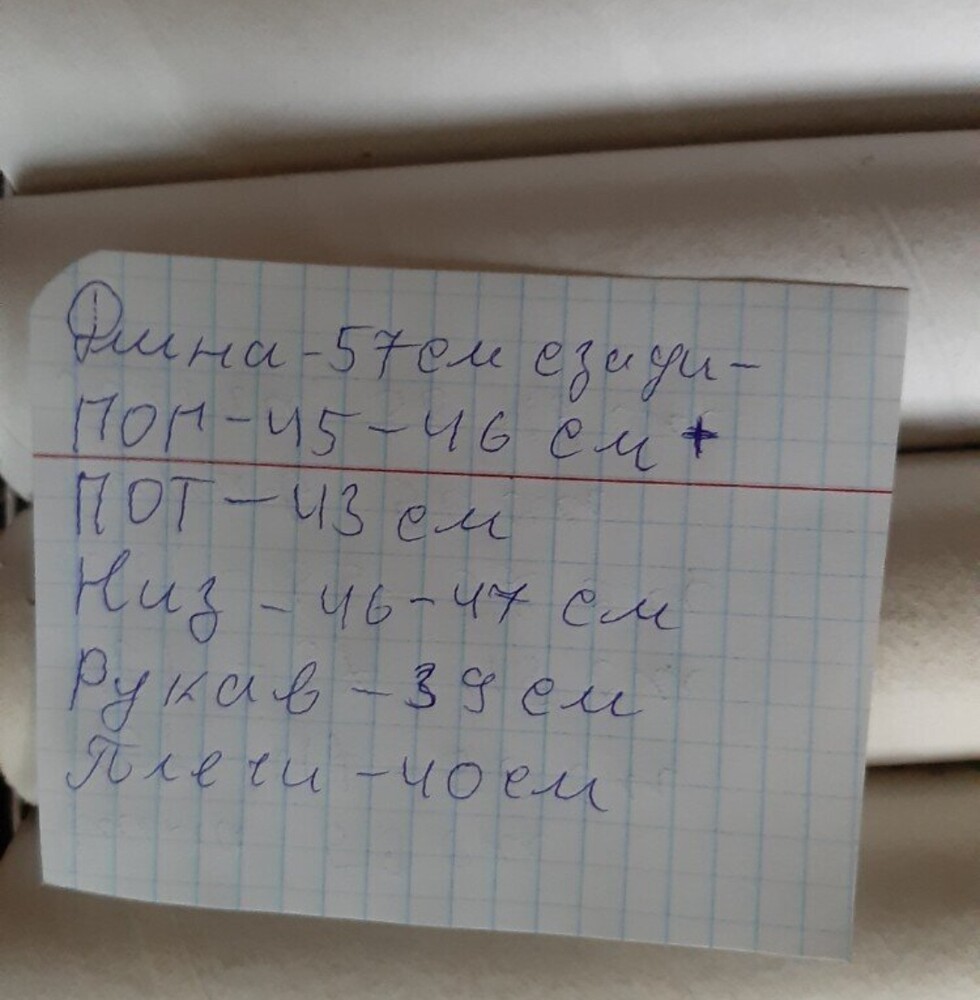 Длина - 57 см сзади -
ПОГ - 45 - 46 см +
ПОТ - 43 см
Низ - 46 - 47 см
Рукав - 39 см
Плечи - 40 см